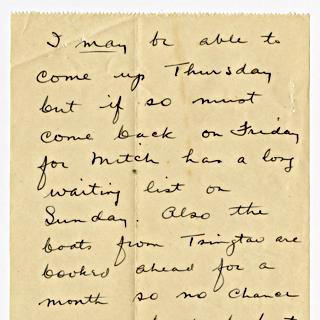 I may be able to
come up Thursday
but if so must
come back on Friday
for Mitch has a long
waiting list on
Sunday. Also the
boats from Tsingtao are
booked ahead for a
month so no chance